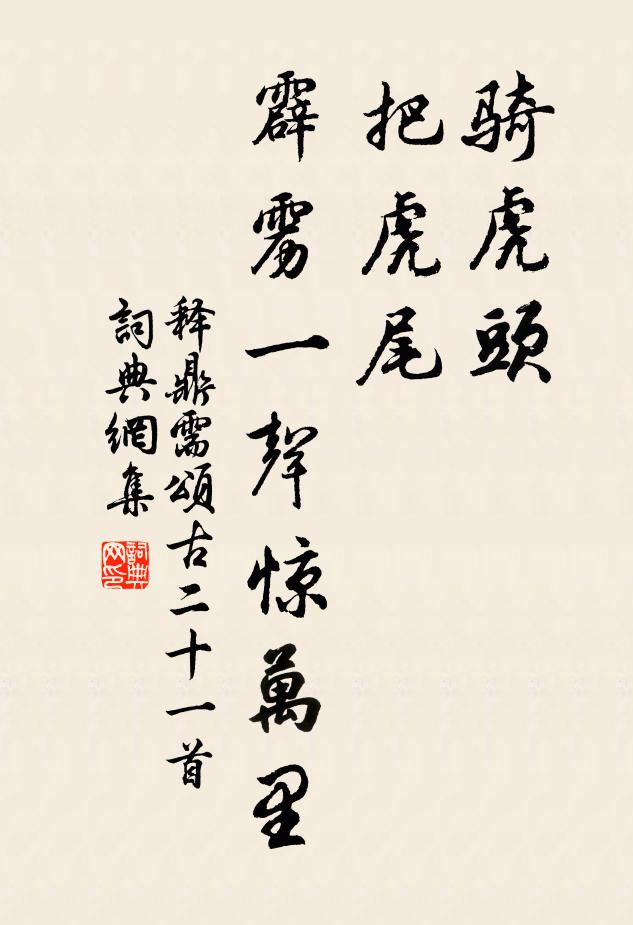 骑虎頭
把虎尾
霹雳一聲惊萬里
释鼎需頌古二十一首
詞典網集
詞典网印